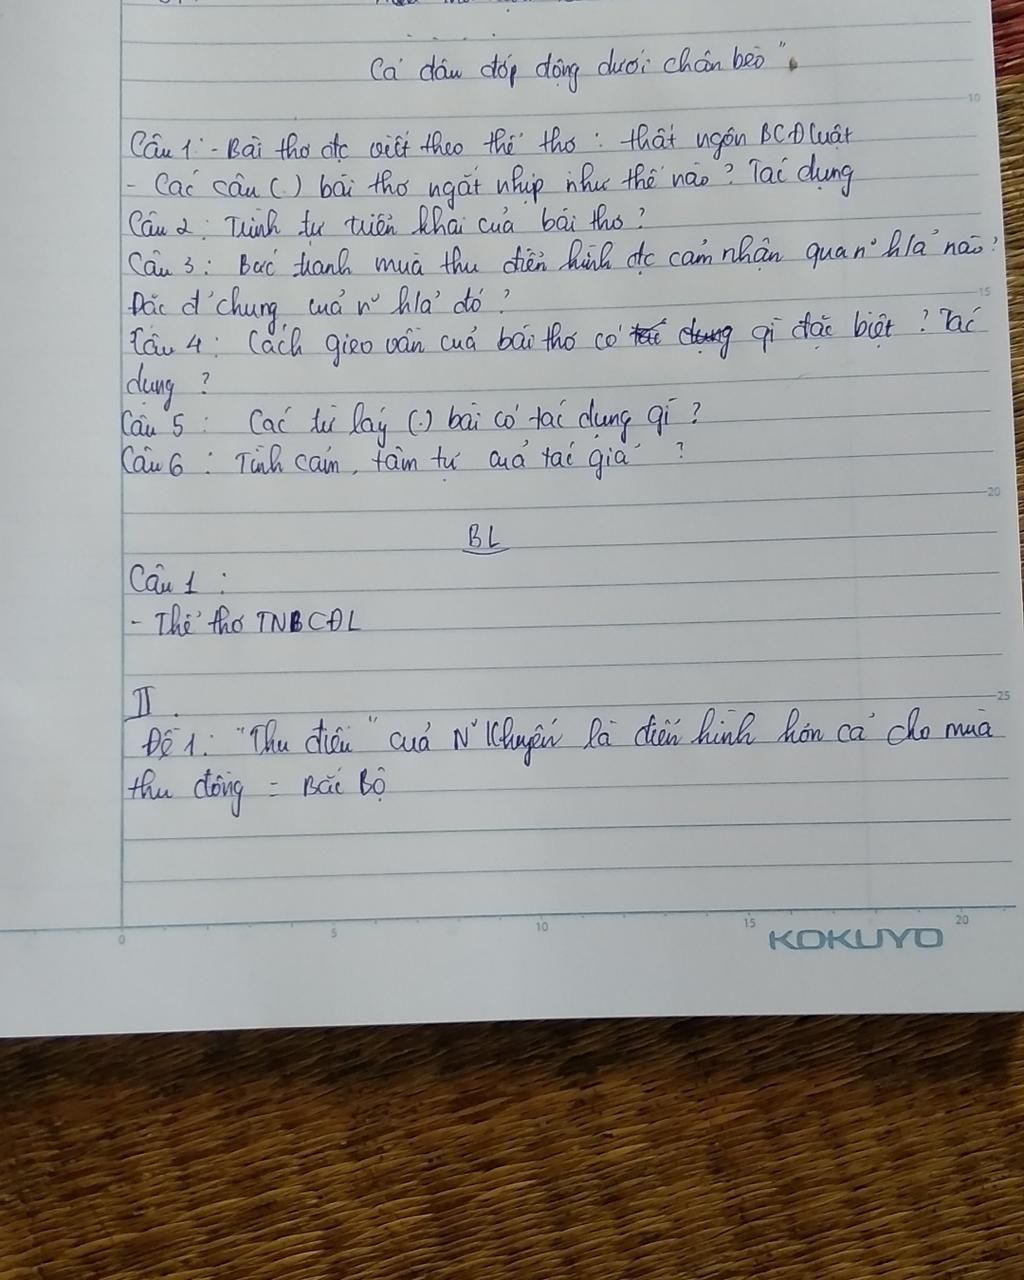 Cá đâu đớp động dưới chân bèo".
10
Câu 1: - Bài thơ đc viết theo thể thơ : thất ngôn BCĐluật
- Các câu (.) bài thơ ngắt nhịp như thế nào ? Tác dụng
Câu 2 : Trình tự triển khai của bài thơ ?
Câu 3 : Bức tranh mùa thu điển hình đc cảm nhận qua n~ h/ả nào ?
Đặc đ' chung của n~ h/ả đó ?
15
Câu 4 : Cách gieo vần của bài thơ có tác dụng gì đặc biệt ? Tác
dụng ?
Câu 5 : Các từ láy (.) bài có tác dụng gì ?
Câu 6 : Tình cảm, tâm tư của tác giả ?
20
BL
Câu 1 :
- Thể thơ TNBCĐL
II.
25
Đề 1 : "Thu điếu" của N~ Khuyến là điển hình hơn cả cho mùa
thu đồng = Bắc Bộ
0 5 10 15 20
KOKUYO